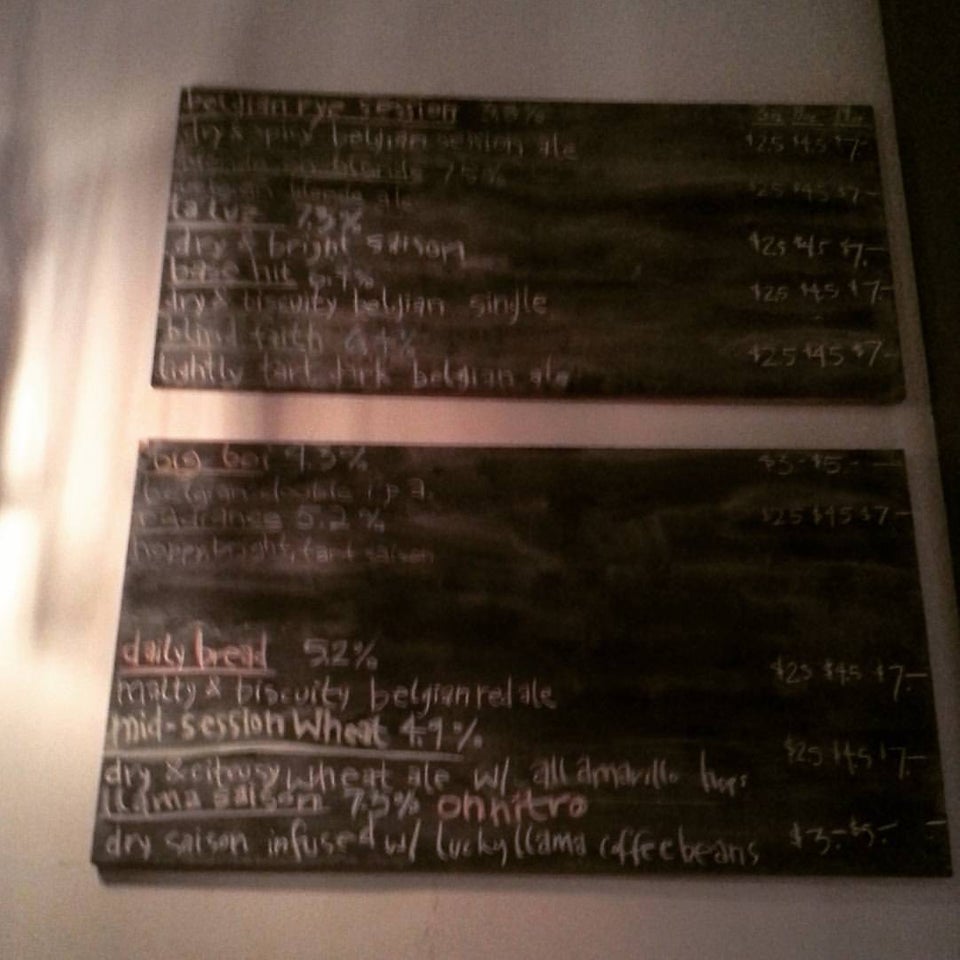 belgian rye session
dry & spicy belgian session ale $25 $45 $7-
blonde 7.5%
blonde ale $25 $45 $7-
7.5%
dry & bright saison $25 $45 $7-
base hit
dry & biscuity belgian single $25 $45 $7-
blind faith 6.4%
lightly tart dark belgian ale $25 $45 $7-
big boi 9.3% $3- $5-
belgian double ipa
radiance 5.2% $25 $45 $7-
hoppy, bright, tart saison
daily bread 5.2%
malty & biscuity belgian red ale $25 $45 $7-
mid-session wheat 4.9%
dry & citrusy wheat ale w/ all amarillo hops $25 $45 $7-
llama saison 7.5% on nitro
dry saison infused w/ lucky llama coffee beans $3- $5-